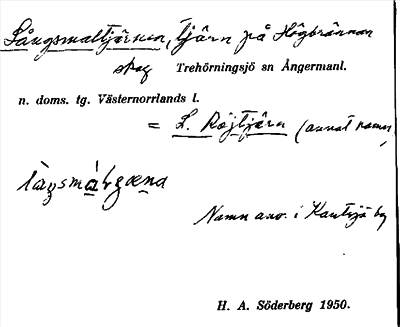 Långsmaltjärnen, tjärn på Högbrännan
skog Trehörningsjö sn Ångermanl.
n. doms. tg. Västernorrlands l.
= L. Röjtjärn (annat namn)
Namn anv. i Kantsjö by
H. A. Söderberg 1950.